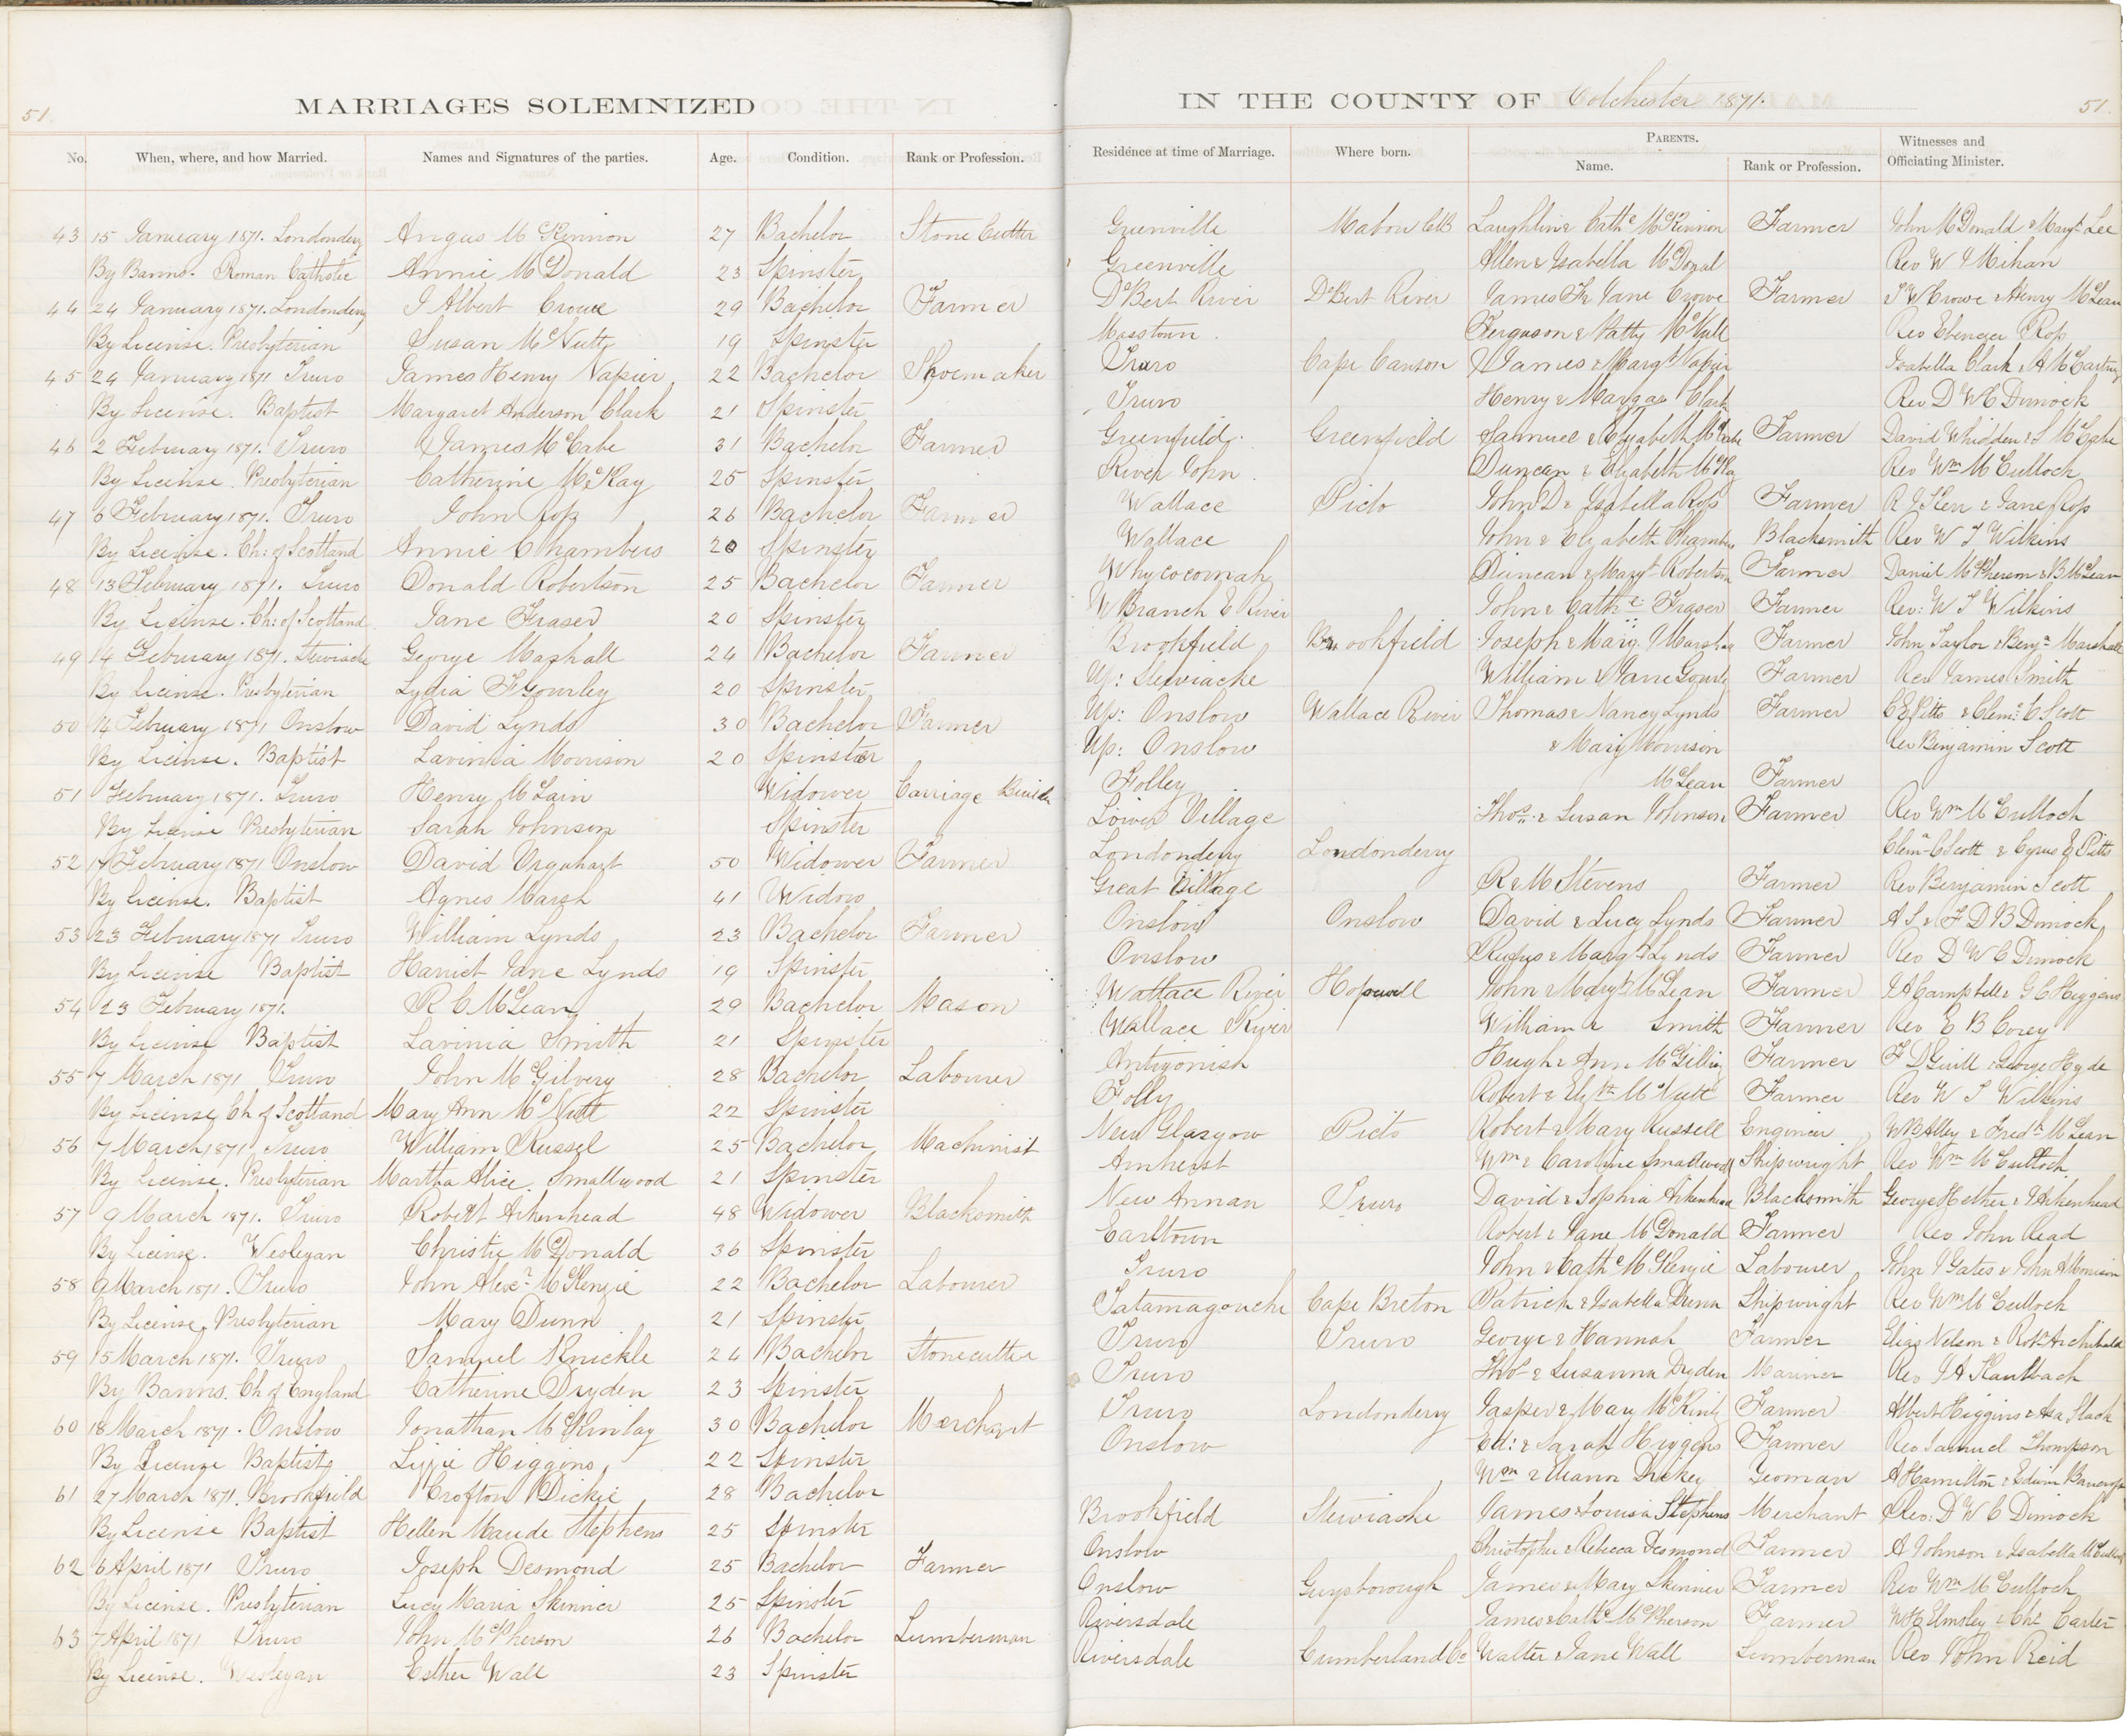 51.
MARRIAGES SOLEMNIZED
IN THE COUNTY OF Colchester 1871.
51.
No. When, where, and how Married. Names and Signatures of the parties. Age. Condition. Rank or Profession. Residence at time of Marriage. Where born. PARENTS. Name. Rank or Profession. Witnesses and Officiating Minister.
43 15 January 1871. Londonderry Angus McKinnon 27 Bachelor Stone Cutter Greenville Mabou CB Laughlin & Cathe McKinnon Farmer John McDonald & Margt Lee
By Banns. Roman Catholic Annie McDonald 23 Spinster Greenville Allen & Isabella McDonal Rev W Mihan
44 24 January 1871. Londonderry J Albert Crowe 29 Bachelor Farmer DeBert River DeBert River James F & Jane Crowe Farmer J W Crowe & Henry McLean
By License. Presbyterian Susan McNutt 19 Spinster Masstown. Ferguson & Patty McNutt Rev Ebenezer Ross
45 24 January 1871 Truro James Henry Napier 22 Bachelor Shoemaker Truro Cape Canson James & Margt Napier Isabella Clark & A McCartney
By License. Baptist Margaret Anderson Clark 21 Spinster Truro Henry & Margaa Clark Rev D W C Dimock
46 2 February 1871. Truro James McCabe 31 Bachelor Farmer Greenfield. Greenfield Samuel & Elizabeth McCabe Farmer David Whidden & S McCabe
By License. Presbyterian Catherine McKay 25 Spinster River John. Duncan & Elizabeth McKay Rev Wm McCulloch
47 6 February 1871. Truro John Ross 26 Bachelor Farmer Wallace Picto John D & Isabella Ross Farmer R J Kerr & Jane Ross
By License. Ch: of Scotland Annie Chambers 20 Spinster Wallace John & Elizabeth Chambers Blacksmith Rev W T Wilkins
48 13 February 1871. Truro Donald Robertson 25 Bachelor Farmer Whycocomah Duncan & Margt Robertson Farmer Daniel McPherson & B McLean
By License. Ch: of Scotland Jane Fraser 20 Spinster W Branch E River John & Cathe Fraser Farmer Rev: W T Wilkins
49 14 February 1871. Stewiacke George Mashall 24 Bachelor Farmer Brookfield Brookfield Joseph & Mary Marshal Farmer John Taylor & Benjn Marshall
By License. Presbyterian Lydia F Gourley 20 Spinster Up: Stewiacke William & Jane Gourly Farmer Rev James Smith
50 14 February 1871 Onslow David Lynds 30 Bachelor Farmer Up: Onslow Wallace River Thomas & Nancy Lynds Farmer C E Pitts & Clemt C Scott
By License. Baptist Lavinia Morrison 20 Spinster Up: Onslow & Mary Morrison Rev Benjamin Scott
51 February 1871. Truro Henry McLain Widower Carriage Builder Folley McLean Farmer
By License Presbyterian Sarah Johnson Spinster Lower Village Thos. & Susan Johnson Farmer Rev Wm McCulloch
52 17 February 1871 Onslow David Urquhart 50 Widower Farmer Londonderry Londonderry Clemt C Scott & Cyrus E Pitts
By License. Baptist Agnes Marsh 41 Widow Great Village R & M Stevens Farmer Rev Benjamin Scott
53 23 February 1871 Truro William Lynds 23 Bachelor Farmer Onslow Onslow David & Lucy Lynds Farmer A S & F D B Dimock
By License Baptist Harriet Jane Lynds 19 Spinster Onslow Rufus & Margt Lynds Farmer Rev D W C Dimock
54 23 February 1871. R C McLean 29 Bachelor Mason Wallace River Hopewell John & Margt McLean Farmer J A Campbell & G C Higgins
By License Baptist Lavinia Smith 21 Spinster Wallace River William & Smith Farmer Rev E B Corey
55 7 March 1871 Truro John McGilvery 28 Bachelor Labourer Antigonish Hugh & Ann Farmer & George Hyde
By License, Ch of Scotland Mary Ann McNutt 22 Spinster Folly Robert & Elizth McNutt Farmer Rev W T Wilkins
56 7 March 1871 Truro William Russel 25 Bachelor Machinist New Glasgow Picto Robert & Mary Russell Engineer & Fredk McLean
By License. Presbyterian Martha Alice Smallwood 21 Spinster Amherst Wm & Caroline Smallwood Shipwright Rev Wm McCulloch
57 9 March 1871. Truro Robert Aikenhead 48 Widower Blacksmith New Annan Truro David & Sophia Aikenhead Blacksmith George Hether & Aikenhead
By License. Wesleyan Christie McDonald 36 Spinster Earltown Robert & Jane McDonald Farmer Rev John Read
58 9 March 1871. Truro John Alexr McKenzie 22 Bachelor Labourer Truro John & Cathe McKenzie Labourer John Gates & John A Morrison
By License, Presbyterian Mary Dunn 21 Spinster Tatamagouche Cape Breton Patrick & Isabella Dunn Shipwright Rev Wm McCulloch
59 15 March 1871. Truro Samuel Knickle 24 Bachelor Stonecutter Truro Truro George & Hannah Farmer Elias Nelson & Robt Archibald
By Banns. Ch of England Catherine Dryden 23 Spinster Truro Thos & Susanna Dryden Mariner Rev J A Kaulbach
60 18 March 1871. Onslow Jonathan McKinlay 30 Bachelor Merchant Truro Londonderry Jasper & Mary McKinly Farmer Albert Higgins & Asa Slack
By License Baptist Lizzie Higgins 22 Spinster Onslow Ed: & Sarah Higgins Farmer Rev Samuel Thompson
61 27 March 1871. Brookfield Crofton Dickie 28 Bachelor Wm & Eleanor Dickey Yeoman A Hamilton & Edwin Bancroft
By License Baptist Hellen Maude Stephens 25 Spinster Brookfield Stewiacke James & Louisa Stephens Merchant Rev: D W C Dimock
62 6 April 1871 Truro Joseph Desmond 25 Bachelor Farmer Onslow Christopher & Rebecca Desmond Farmer A Johnson & Isabella McCulloch
By License. Presbyterian Lucy Maria Skinner 25 Spinster Onslow Guysborough James & Mary Skinner Farmer Rev Wm McCulloch
63 7 April 1871 Truro John McPherson 26 Bachelor Lumberman Riversdale James & Cathe McPherson Farmer W H Elmsley & Chs Carter
By License. Wesleyan Esther Wall 23 Spinster Riversdale Cumberland Co Walter & Jane Wall Lumberman Rev John Reid